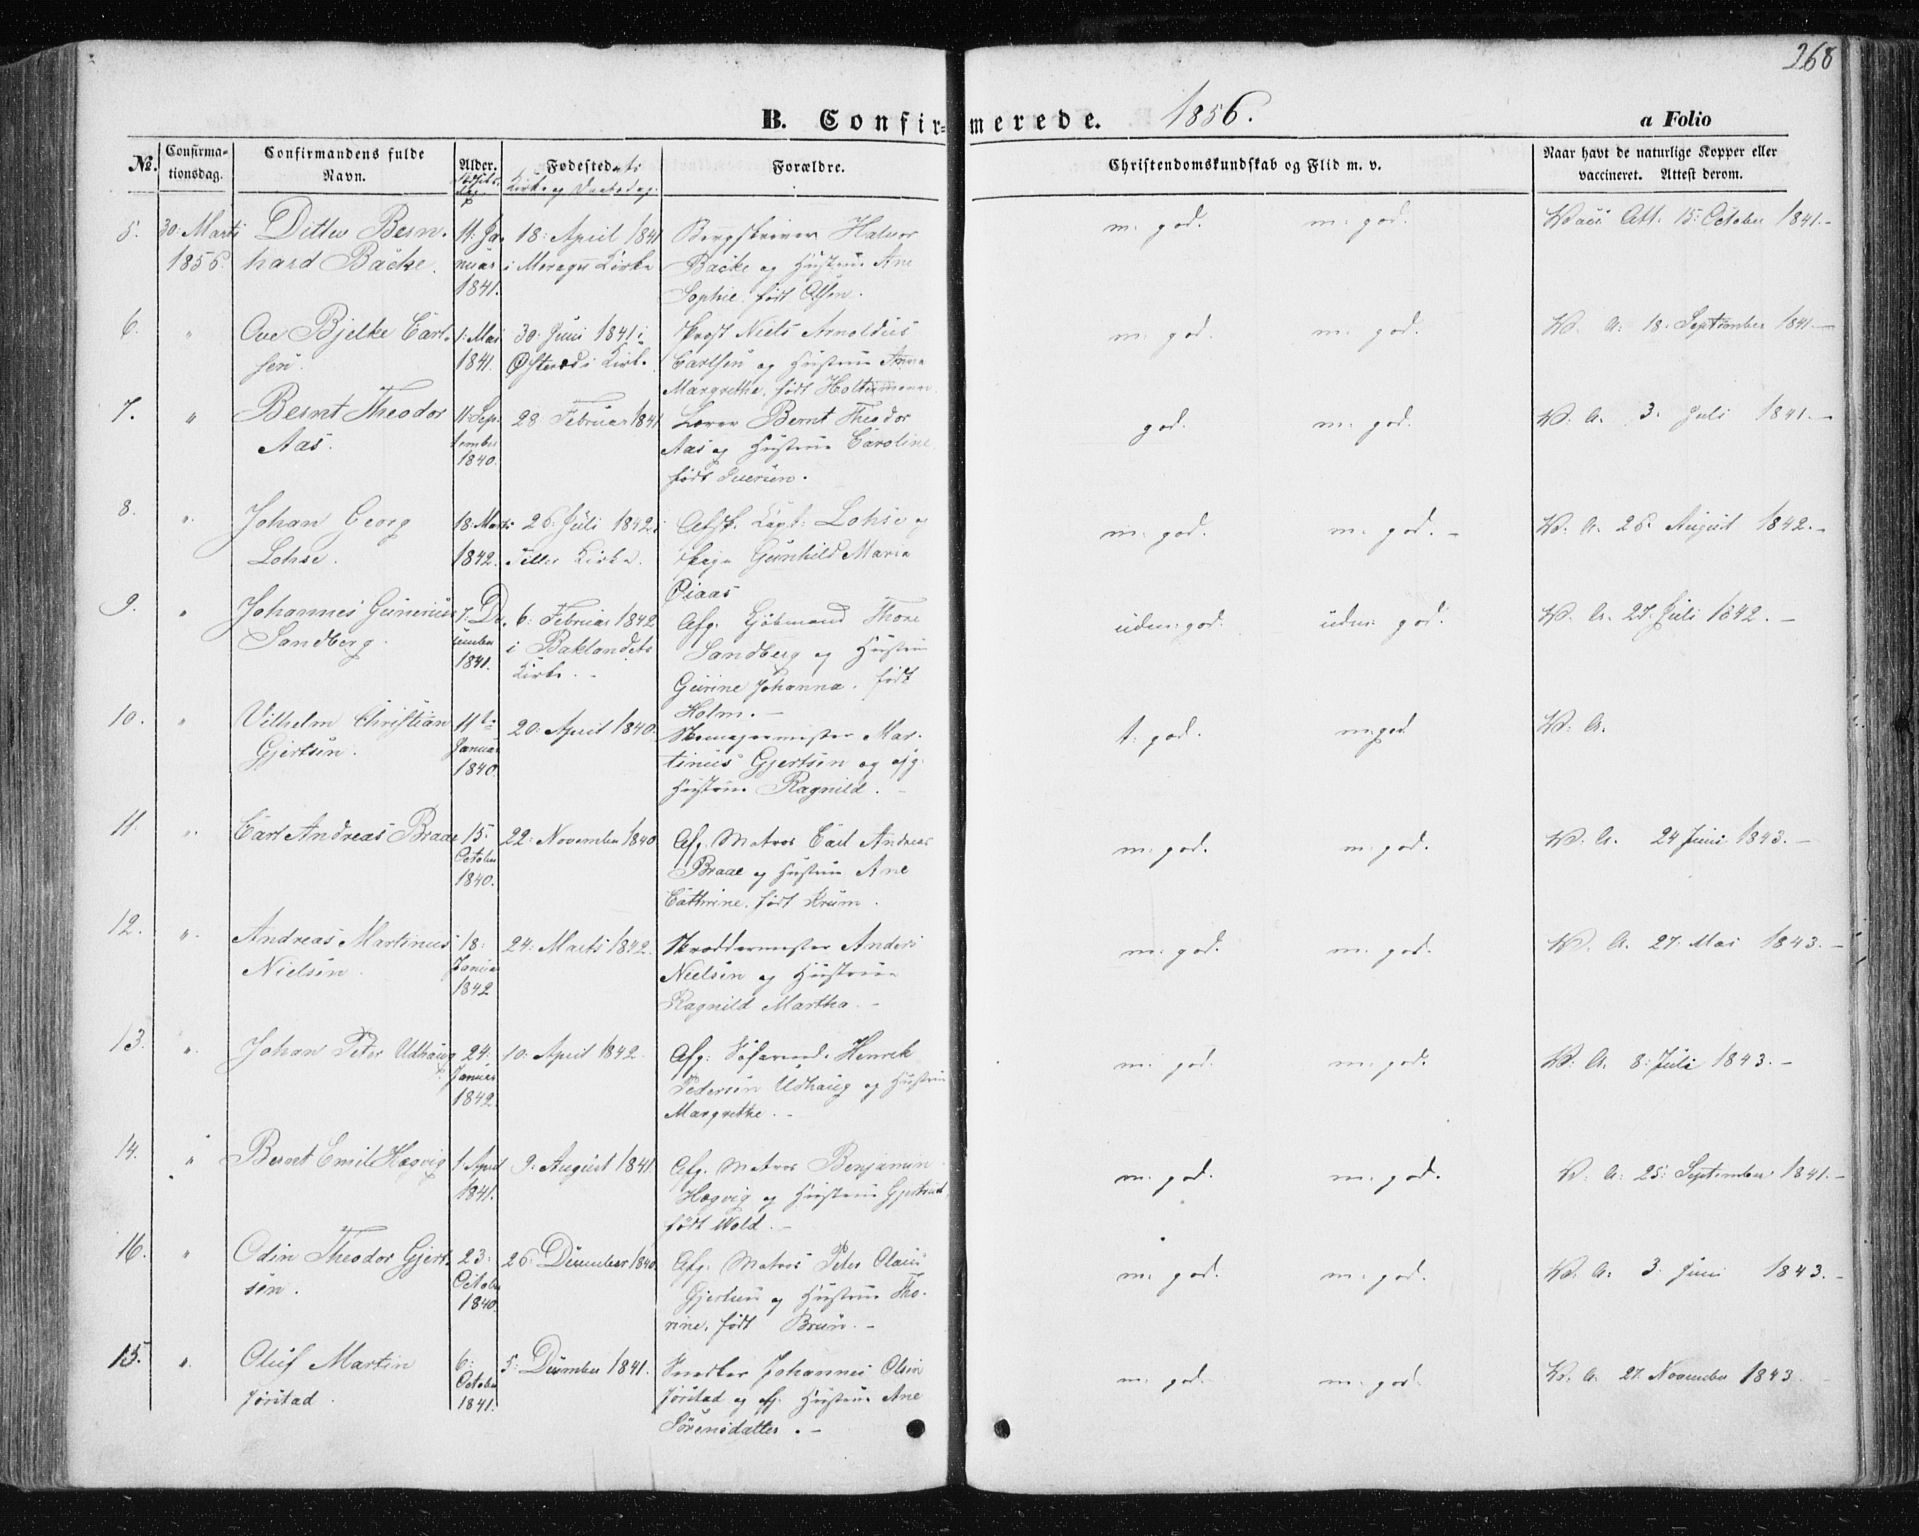 268
B. Confirmerede. 1856.
a Folio
No.
Confirmationsdag.
Confirmandens fulde Navn.
Alder.
Fødested
Kirke og Daabsdag
Forældre.
Christendomskundskab og Flid m. v.
Naar havt de naturlige Kopper eller vaccineret. Attest derom.
5. 30 Marts 1856. Ditlev Bernhard Bäcke. 11: Januar 1841. 18: April 1841 i Kirke Bergskriver Halvor Bäcke og Hustrue Ane Sophie, født Olsen. m. god. m. god. Vacc Att. 15: October 1841.-
6. " Ove Bjelke Carlsen. 1. Mai 1841. 30. Juni 1841 i Kirke Provst Niels Arnoldus Carlsen og Hustrue Anna Margrethe, født Holtermann. m. god. m. god. V. A. 18. September 1841.-
7. " Bernt Theodor Aas. 11. September 1840. 28 Februar 1841 Lærer Bernt Theodor Aas og Hustrue Caroline født god. m. god. V. A. 3. Juli 1841.-
8. " Johan Georg Lohse. 18. Marts 1842. 26. Juli 1842. Tiller Kirke. Afsk. Capt: Lohse og Pige Gunhild Maria Øiaas m. god. m. god.- V. A. 26. August 1842.-
9. " Johannes Gunerius Sandberg. 7. December 1841. 6. Februar 1842 i Baklandets Kirke.- Afg. Thore Sandberg og Hustrue Gurine Johanna, født Holm.- udm. god. udm. god. V. A. 27. Juli 1842.-
10. " Vilhelm Christian Gjertsen. 11te Januar 1840. 20. April 1840. Skomagermester Martinus Gjertsen og afg. Hustrue Ragnild.- t. god. m. god V. A.
11. " Carl Andreas Braae 15. October 1840. 22. November 1840 Afg. Matros Carl Andreas Braae og Hustrue Ane Cathrine, født Krum. m. god. m. god. V. A. 24 Juni 1843.-
12. " Andreas Martinus Nielsen. 18: Januar 1842 24. Marts 1842. Skræddermester Anders Nielsen og Hustrue Ragnild Martha.- m. god. m. god. V. A. 27. Mai 1843.-
13. " Johan Peter Udhaug. 24. Januar 1842. 10. April 1842. Afg. Søfarende Henrik Pedersen Udhaug og Hustrue Margrethe.- m. god. m. god. V. A. 8. Juli 1843.-
14. " Bernt Emil Høgvig 1 April 1841. 9. August 1841 Afg. Matros Benjamin Høgvig og Hustrue Gjertrud født Wold.- m. god. m. god. V. A. 25. September 1841.-
16. " Odin Theodor Gjertsen. 23. October 1840. 26. December 1840. Afg. Matros Peter Olaus Gjertsen og Hustrue Thorine, født Brun.- m. god. m. god. V. A. 3. Juni 1843.-
15. " Oluf Martin Jørstad. 6. October 1841. 5. December 1841. Snedker Johannes Olsen Jørstad og afg. Hustrue Ane Sørensdatter.- m. god. m. god. V. A. 27. November 1843.